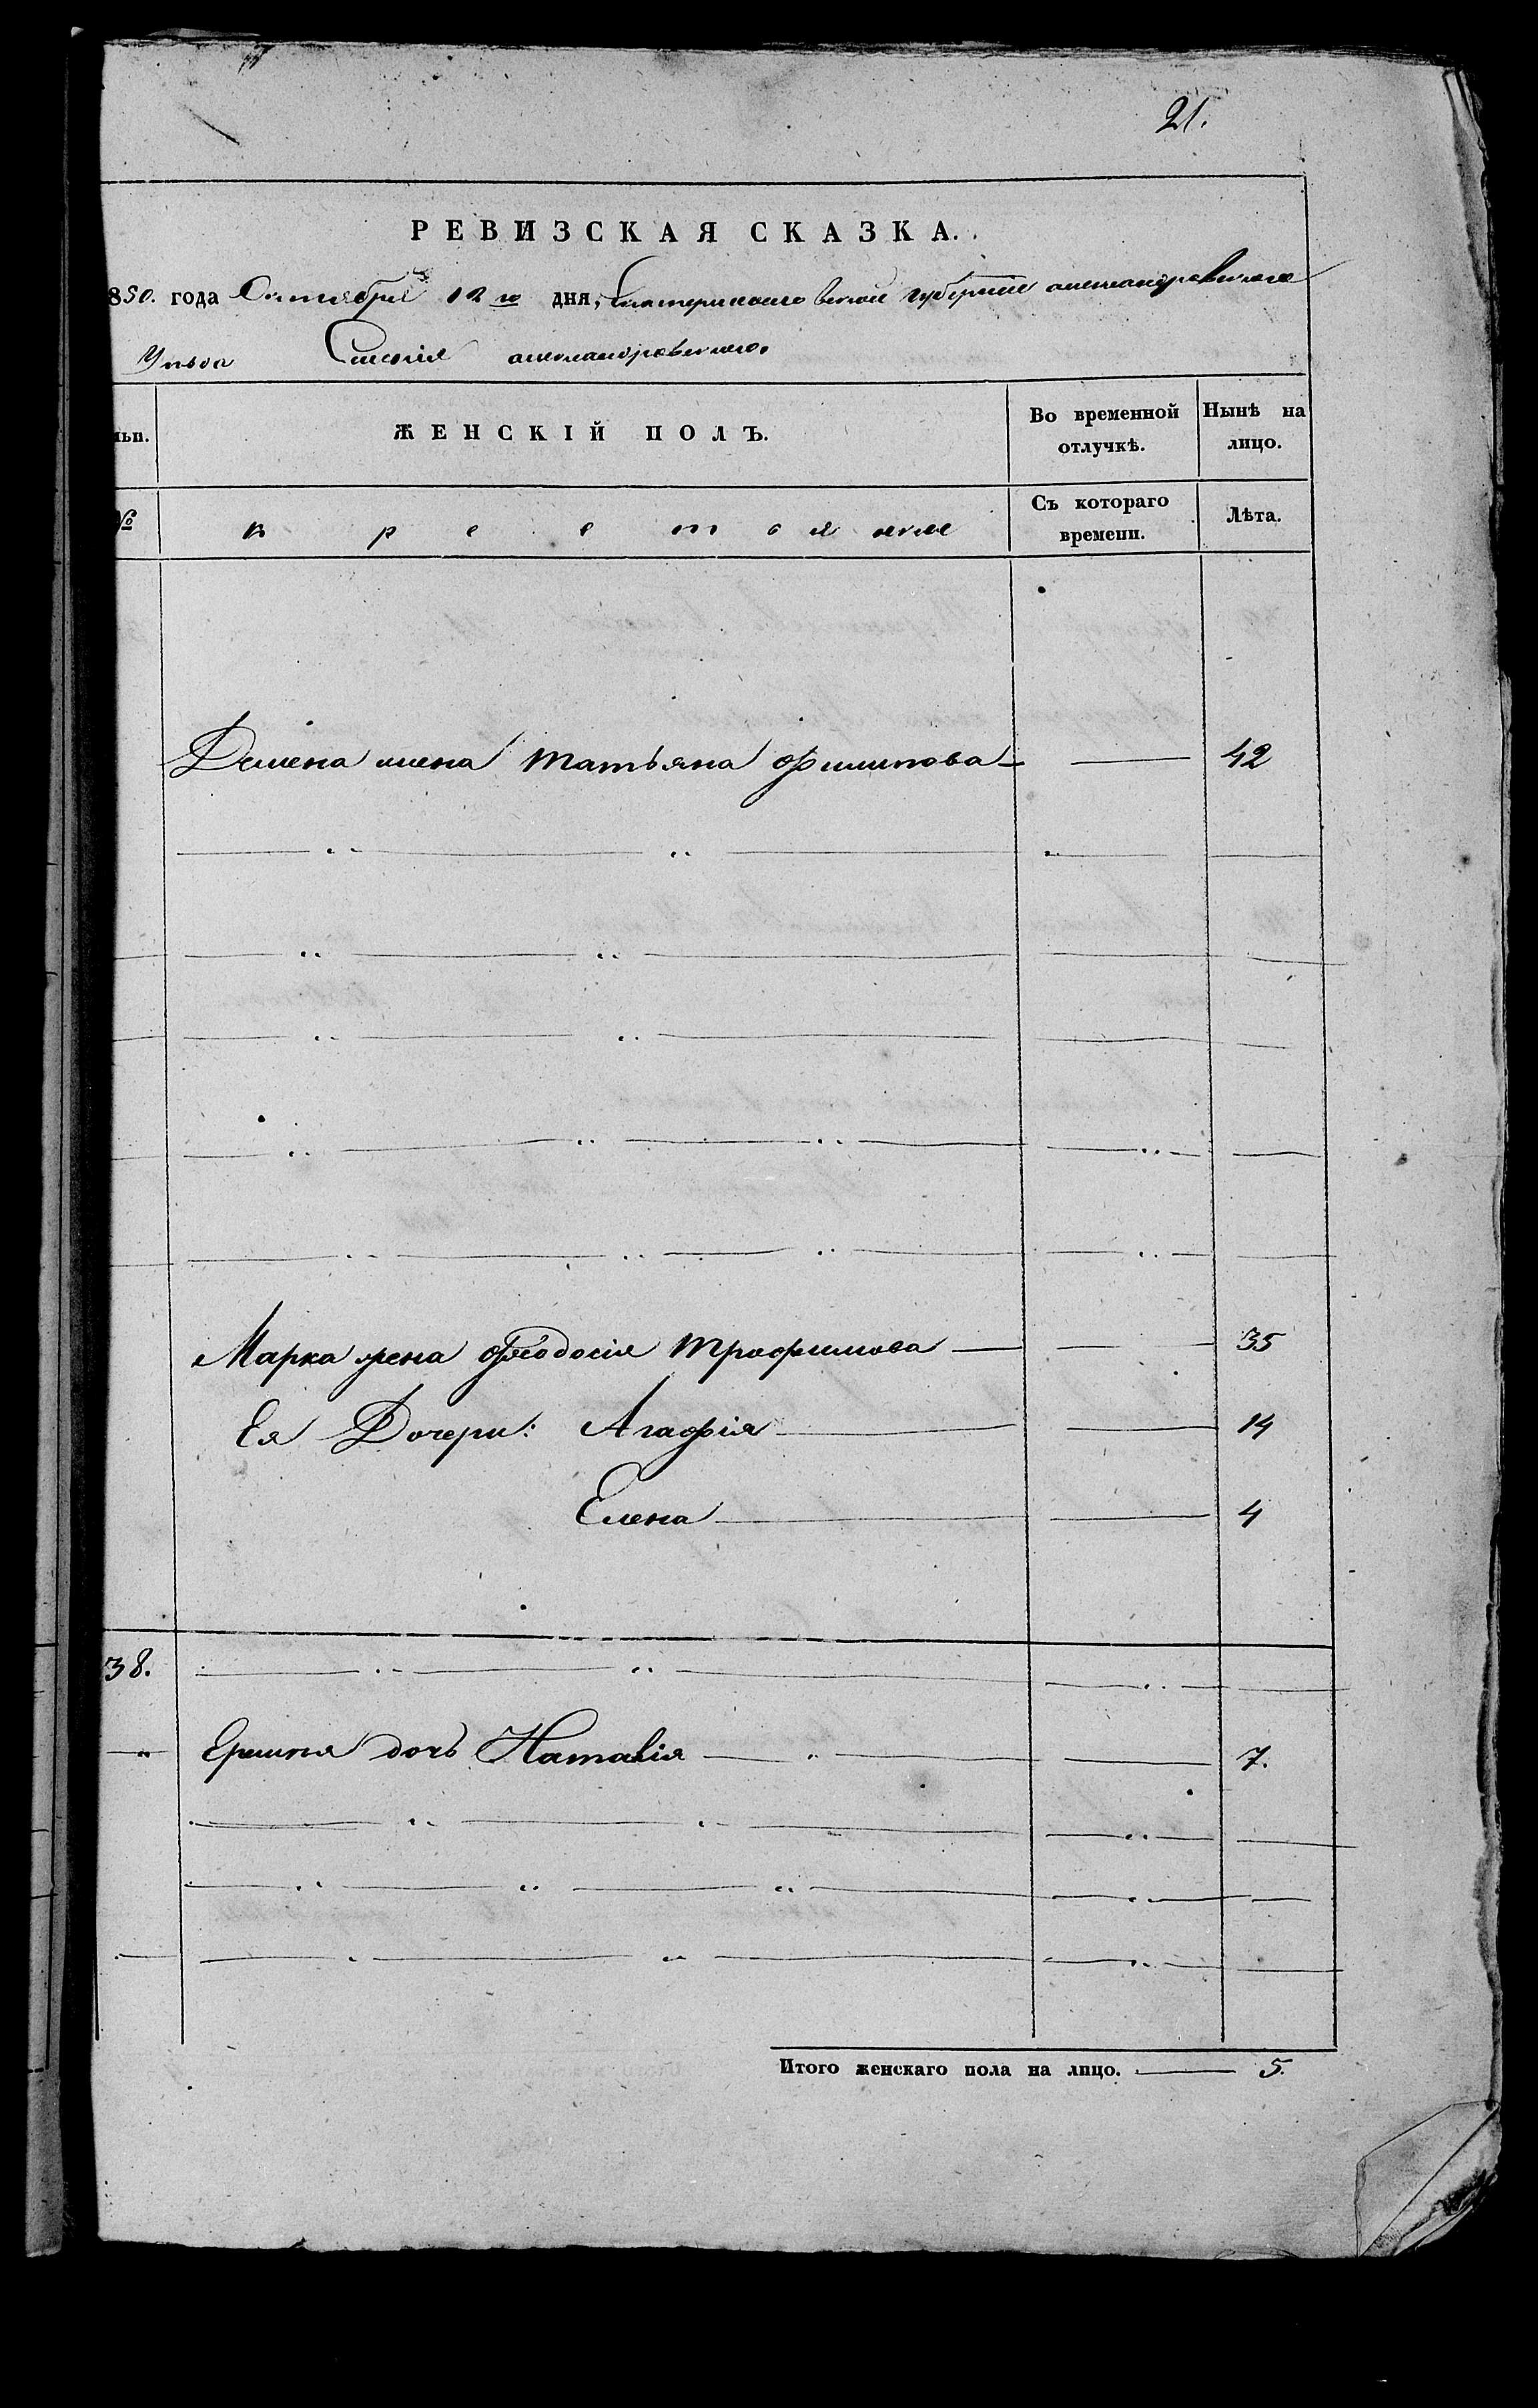 21.
РЕВИЗСКАЯ СКАЗКА.
850. года Октября 12 го дня, Екатеринославской губернии александровского
Уѣзда Имѣнія александровского.
ЖЕНСКІЙ ПОЛЪ. Во временной отлучкѣ. Нынѣ на лицо.
№ Съ котораго времени. Лѣта.
Демена жена Татьяна Филипова 42
Марка жена Феодосія Трофимова 35
Ея Дочери: Агафія 14
Елена 4
38.
дочь Наталія 7.
Итого женскаго пола на лицо. 5.